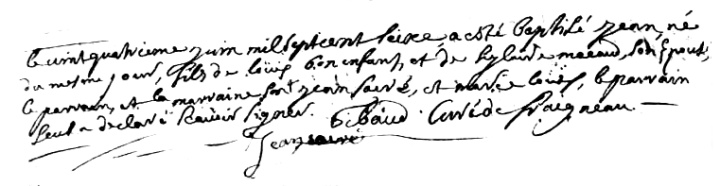 le vint quatrieme juin mil sept cent seize, a esté baptisé jean, né
du mesme jour, fils de louis bon enfant, et de hylaire macaud, son epouse,
le parrain, et la marraine sont jean sauvé, et marie louis, le parrain
seul a declaré scavoir signer. Thibaud Curé de fraigneau
jean sauvé